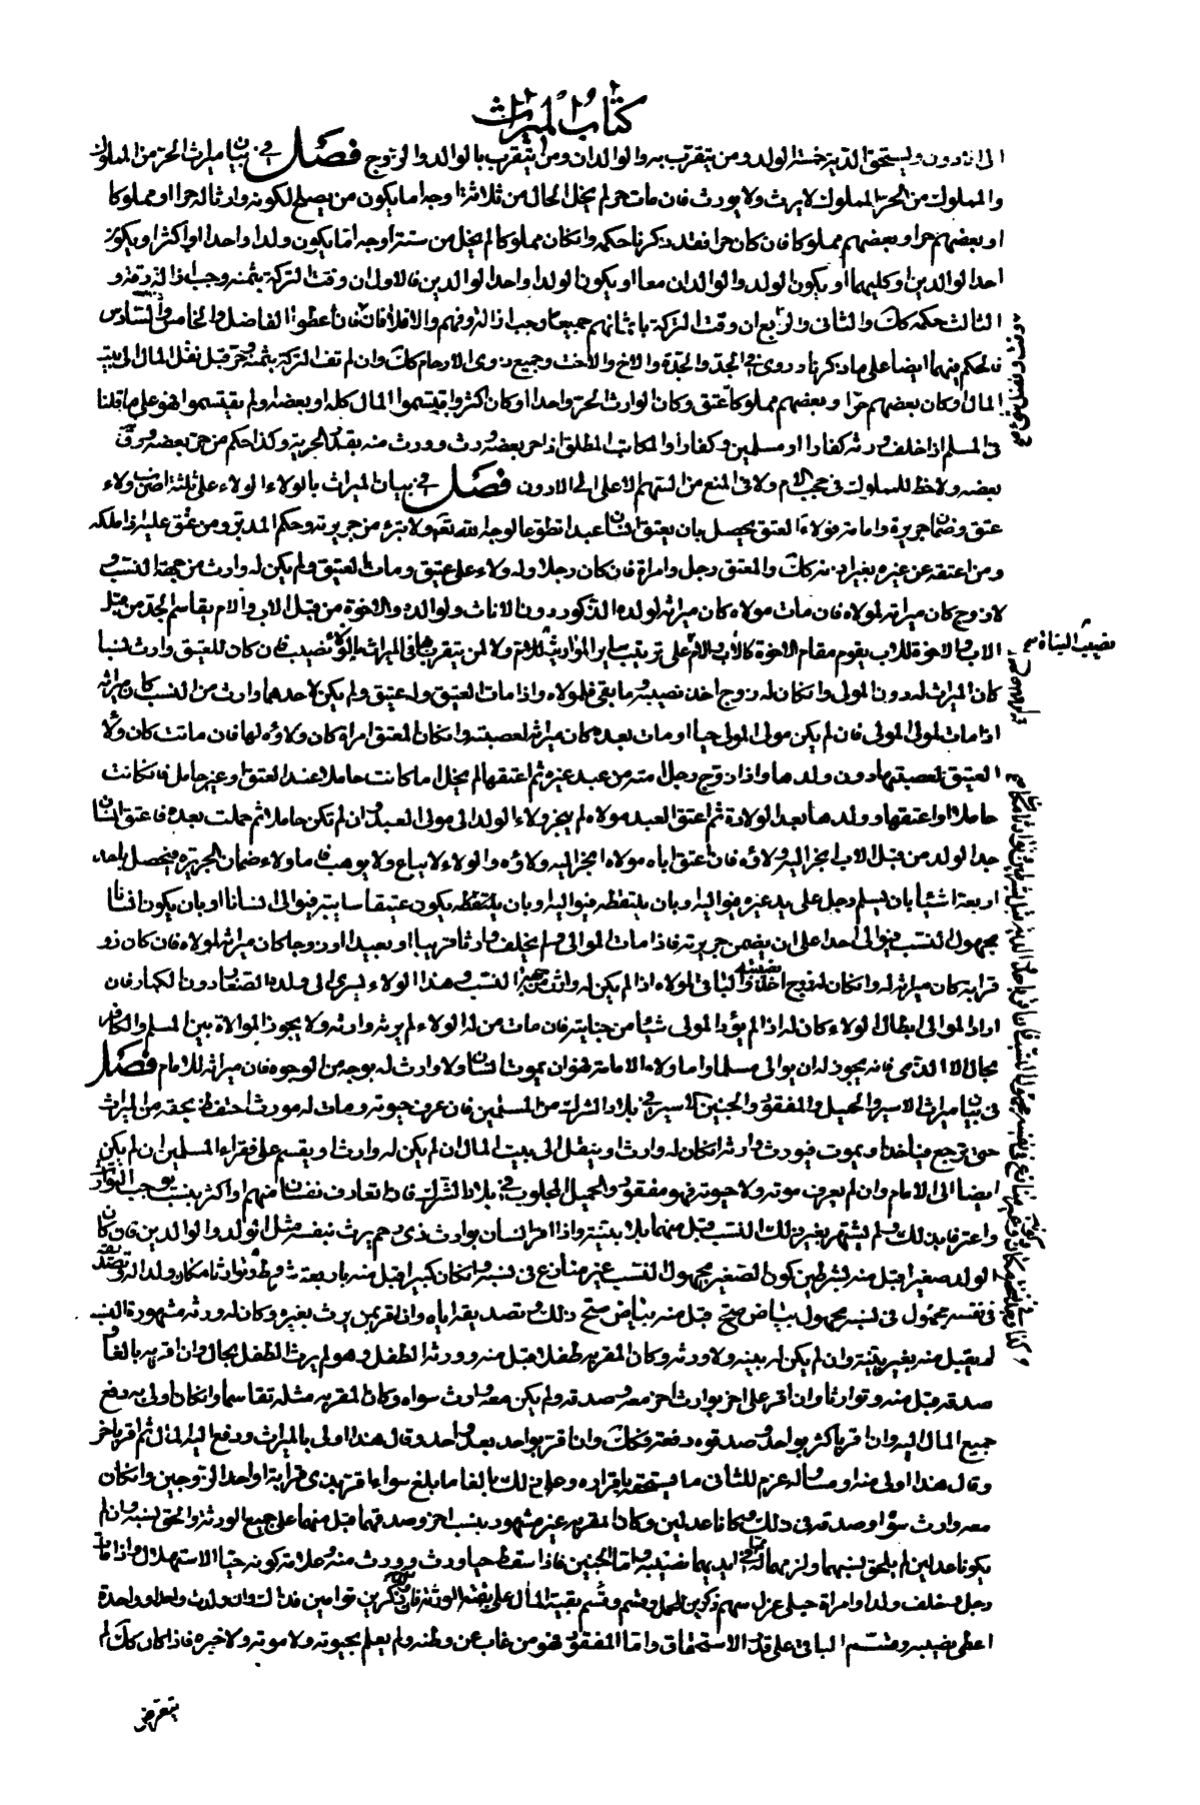 كتاب الميراث
الى الادون ويستحق الدية خمسة الولد ومن يتقرب به والوالدان ومن يتقرب بالوالد والزوج فصل في بيان ميراث الحر من المملوك
والمملوك من الحر المملوك لا يرث ولا يورث فان مات حر لم يخل الحال من ثلاثة اوجه اما يكون من يصلح لكونه وارثا له حرا او مملوكا
او بعضهم حرا وبعضهم مملوكا فان كان حرا فقد ذكرنا حكمه وان كان مملوكا لم يخل من ستة اوجه اما يكون ولدا واحدا او اكثر او يكون
احد الوالدين او كليهما او يكون الولد والوالدان معا او يكون الولد واحد الوالدين فالاول ان وفت التركة بثمنه وجب ازالة رقه و
الثالث حكمه كك والثاني والرابع ان وفت التركة باثمانهم جميعا وجب ازالة رقهم والا فلا فان اعطوا الفاضل والخامس والسادس
فالحكم فيهما ايضا على ما ذكرنا وروى في الجد والجدة والاخ والاخت وجميع ذوى الارحام كك وان لم تف التركة بثمنه وحرر قبل نقل المال الى بيت
المال او كان بعضهم حرا وبعضهم مملوكا عتق وكان الوارث الحر واحدا او كان اكثر واقتسموا المال كله او بعضه ولم يقتسموا فهو على ما قلنا
في المسلم اذا خلف ورثة كفارا او مسلمين وكفارا والمكاتب المطلق اذا حر بعضه ورث وورث منه بقدر الحرية وكذا حكم من حر بعضه ورق
بعضه ولا حظ للمملوك في حجب الام ولا في المنع من السهم الاعلى الى الادون فصل في بيان الميراث بالولاء الولاء على ثلثة اضرب ولاء
عتق وضمان جريرة وامامة فولاء العتق يحصل بان يعتق انسان عبدا تطوعا لوجه الله تعالى ولا تبرء من جريرته وحكم المدبر ومن عتق عليه اذا ملكه
ومن اعتقه عن غيره بغير اذنه كك والمعتق رجل وامراة فان كان رجلا وله ولاء على عتيق ومات العتيق ولم يكن له وارث من جهة النسب و
لا زوج كان ميراثه لمولاه فان مات مولاه كان ميراثه لولده الذكور دون الاناث ولوالده والاخوة من قبل الاب والام يقاسم الجد من قبل
الاب والاخوة للاب يقوم مقام الاخوة للاب والام على ترتيب ساير المواريث وللام ولا لمن يتقرب بها في الميراث بالولاء نصيب فان كان للعتيق وارث نسبا
كان الميراث له دون المولى وان كان له زوج اخذ نصيبه وما بقى فلمولاه واذا مات العتيق وله عتيق ولم يكن لاحدهما وارث من النسب كان ميراثه
اذا مات لمولى المولى فان لم يكن مولى المولى حيا او مات بعده كان ميراثه لعصبته وان كان المعتق امراة كان ولاؤه لها فان ماتت كان ولاء
العتيق لعصبتها دون ولدها واذا زوج رجل امته من عبد غيره ثم اعتقها لم يخل اما كانت حاملا عند العتق او غير حامل فان كانت
حاملا او اعتقها وولدها بعد الولادة ثم اعتق العبد مولاه لم ينجر ولاء الولد الى مولى العبد وان لم تكن حاملا ثم حملت بعده فاعتق انسان
جد الولد من قبل الاب انجر اليه ولاؤه فان اعتق اباه مولاه انجر اليه ولاؤه والولاء لا يباع ولا يوهب فاما ولاء ضمان الجريرة فيحصل باحد
اربعة اشياء بان يسلم رجل على يد غيره فيواليه وبان يلتقطه فيواليه وبان يكون عتيقا سايبة فيوالى انسانا او بان يكون انسان
مجهول النسب فيوالى احدا على ان يضمن جريرته فاذا مات الموالى ولم يخلف وارثا قريبا او بعيدا او زوجا كان ميراثه لمولاه فان كان ذو
قرابة كان ميراثه له وان كان له زوج اخذ نصيبه والباقى لمولاه اذا لم يكن له وارث من جهة النسب وهذا الولاء يسرى الى ولده الصغار دون الكبار فان
اراد الموالى ابطال الولاء كان له اذا لم يؤد المولى شيئا من جنايته فان مات من له الولاء لم يرثه وارثه ولا يجوز الموالاة بين المسلم والكافر
بحال الا الذمى فانه يجوز له ان يوالى مسلما واما ولاء الامامة فهو ان يموت انسان ولا وارث له بوجه من الوجوه فان ميراثه للامام فصل
في بيان ميراث الاسير والحميل والمفقود والجنين الاسير في بلاد الشرك من المسلمين فان عرف حيوته ومات له مورث احتفظ بحقه من الميراث
حتى يرجع فياخذ او يموت فيورث وارثه ان كان له وارث او ينقل الى بيت المال ان لم يكن له وارث او يقسم على فقراء المسلمين ان لم يكن
ايضا الى الامام وان لم يعرف موته ولا حيوته فهو مفقود والحميل المجلوب في بلاد الشرك فاذا تعارف نفسان منهم او اكثر بنسب يوجب التوارث
واعترفا بذلك ولم يشتهر بغير ذلك النسب قبل منهما بلا بينة واذا اقر انسان بوارث ذى رحم يرث بنفسه مثل الولد والوالدين فان كان
الولد صغيرا قبل منه بشرطين كون الصغير مجهول النسب غير منازع في نسبه وان كان كبيرا قبل منه باربعة شروط وتوارثا امكان ولد الرقى تصديقه
في نفسه مجهول في نسبه مجهول بياض صح قبل منه بياض صح ذلك وتصديقه اياه وان اقر بمن يرث بغيره وكان له ورثة مشهورة النسب
لم يقبل منه بغير بينة وان لم يكن له بينة ولا ورثة وكان المقر به طفلا قبل منه وورثه الطفل وهو لم يرث الطفل بحال وان اقر به بالغا
صدقه قبل منه وتوارثا وان اقر على اخر بوارث اخر معه وصدقه ولم يكن معه وارث سواه وكان المقر به مثله تقاسما وان كان اولى به دفع
جميع المال اليه وان اقر باكثر بواحد وصدقوه دفعة فكك وان اقر بواحد بعد واحد وقال هذا اولى بالميراث ودفع اليه المال ثم اقر باخر
وقال هذا اولى منه او مساو له غرم للثانى ما يستحقه باقراره وعلى ذلك بالغا ما بلغ سواء اقر بذى قرابة او احد الزوجين وان كان
معه وارث سواه وصدقه في ذلك وكانا عدلين وكان المقر به غير مشهور بنسب اخر وصدقهما قبل منهما على جميع الورثة والحق بنسبه وان لم
يكونا عدلين لم يلحق بنسبهما ولزمهما له في ايديهما نصيبه واما الجنين فاذا سقط حيا ورث وورث منه وعلامة كونه حيا الاستهلال واذا مات
رجل وخلف ولدا وامراة حبلى عزل سهم ذكرين للحمل وقسم بقية المال على بقية الورثة فان ولدت ذكرين توامين فذاك وان ولدت واحدا وواحدة
اعطى نصيبه وقسم الباقى على قدر الاستحقاق واما المفقود فهو من غاب عن وطنه ولم يعلم بحيوته ولا موته ولا خبره فاذا كان كك لم
يتعرض